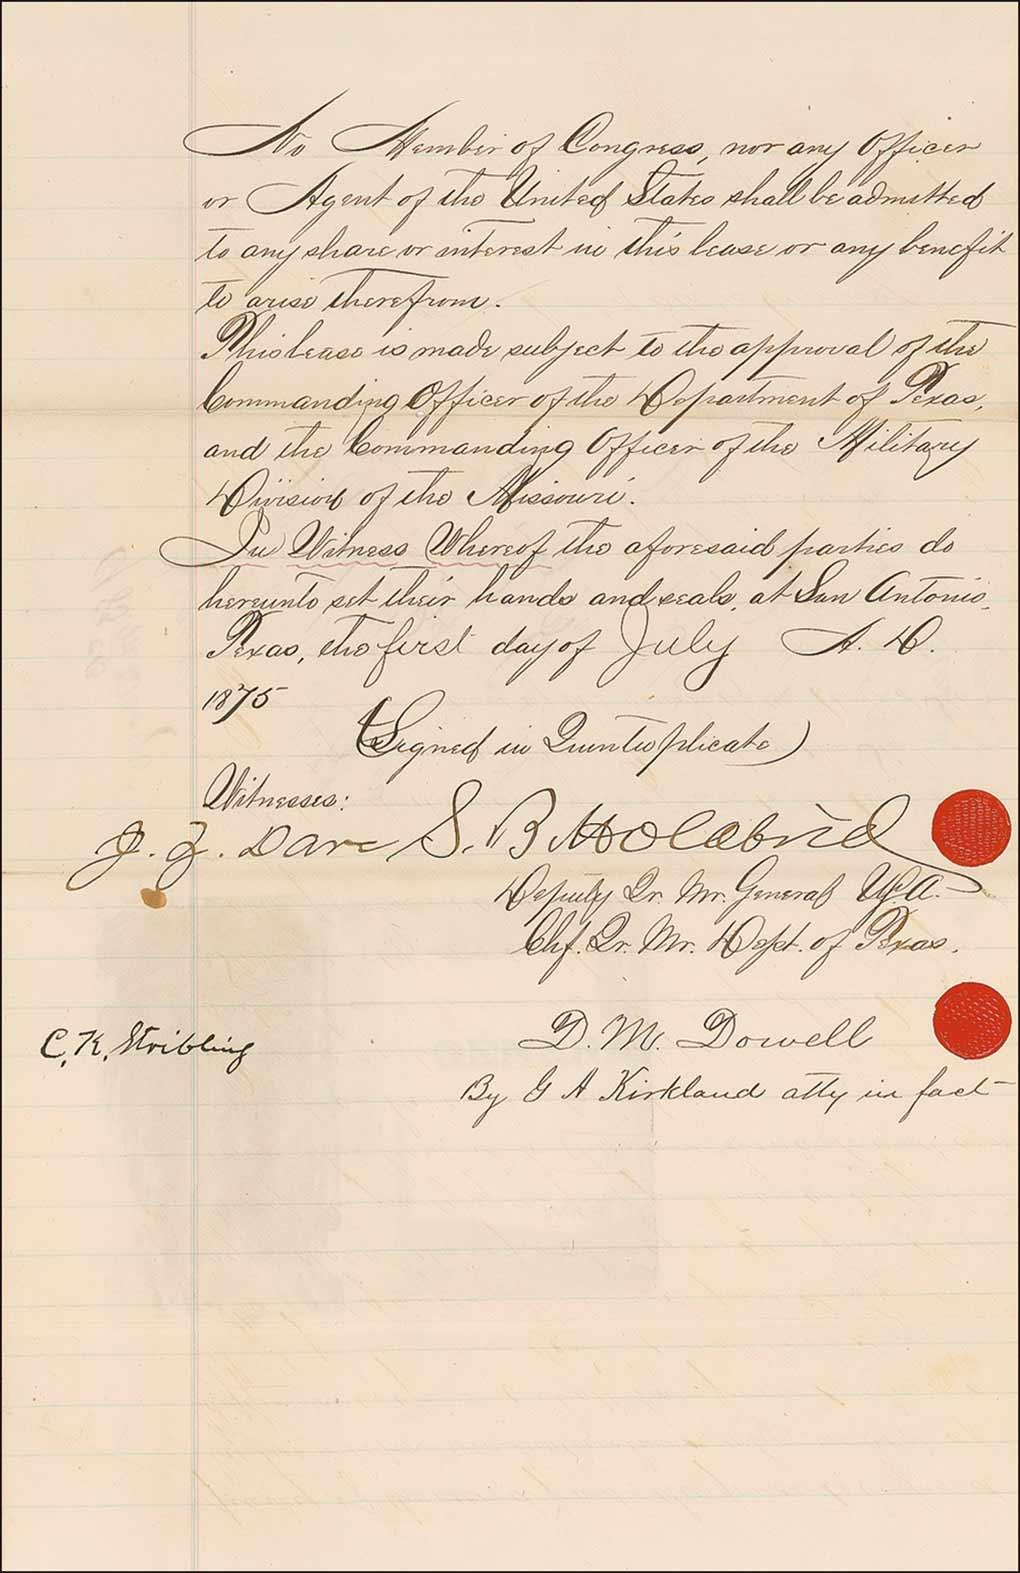 No Member of Congress, nor any Officer
or Agent of the United States shall be admitted
to any share or interest in this lease or any benefit
to arise therefrom.
This lease is made subject to the approval of the
Commanding Officer of the Department of Texas,
and the Commanding Officer of the Military
Division of the Missouri.
In Witness Whereof the aforesaid parties do
hereunto set their hands and seals, at San Antonio,
Texas, the first day of July A. D.
1875
(Signed in Quintuplicate)
Witnesses:
J. Z. Dare S. B. Holabird
Deputy Qr. Mr. General U.S.A.
Chf. Qr. Mr. Dept. of Texas.
C. K. Stribling
D. M. Dowell
By G A Kirkland atty in fact